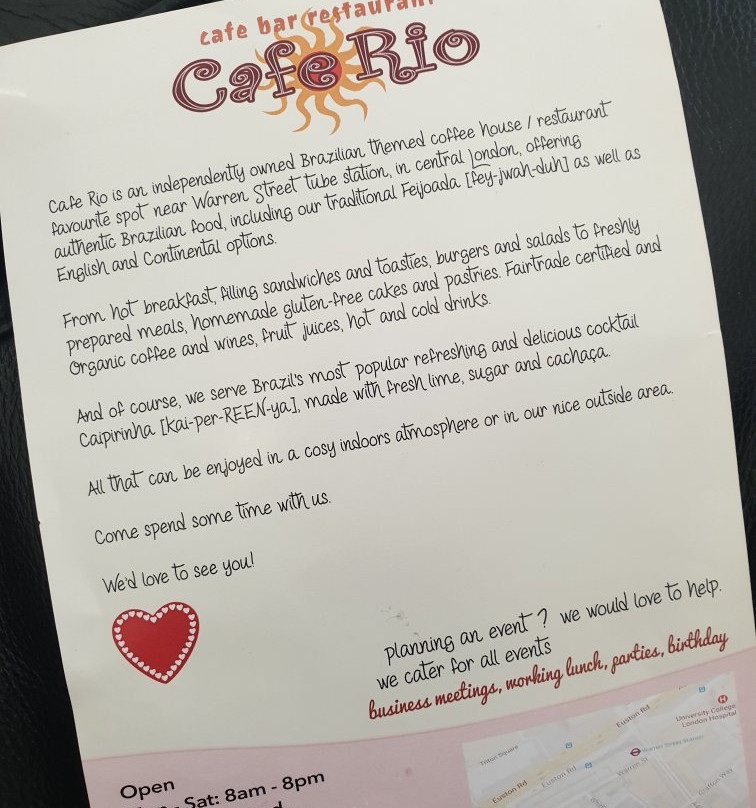 cafe bar restaurant
Cafe Rio
Cafe Rio is an independently owned Brazilian themed coffee house / restaurant
favourite spot near Warren Street tube station, in central London, offering
authentic Brazilian food, including our traditional Feijoada [fey-jwah-duh] as well as
English and Continental options.
From hot breakfast, filling sandwiches and toasties, burgers and salads to freshly
prepared meals, homemade gluten-free cakes and pastries. Fairtrade certified and
Organic coffee and wines, fruit juices, hot and cold drinks.
And of course, we serve Brazil's most popular refreshing and delicious cocktail
Caipirinha [kai-per-REEN-ya], made with fresh lime, sugar and cachaça.
All that can be enjoyed in a cosy indoors atmosphere or in our nice outside area.
Come spend some time with us.
We'd love to see you!
planning an event ? we would love to help.
we cater for all events
business meetings, working lunch, parties, birthday
Open
- Sat: 8am - 8pm
University College
London Hospital
Euston Rd
Triton Square
Warren Street Station
Euston Rd
Euston Rd
Warren St